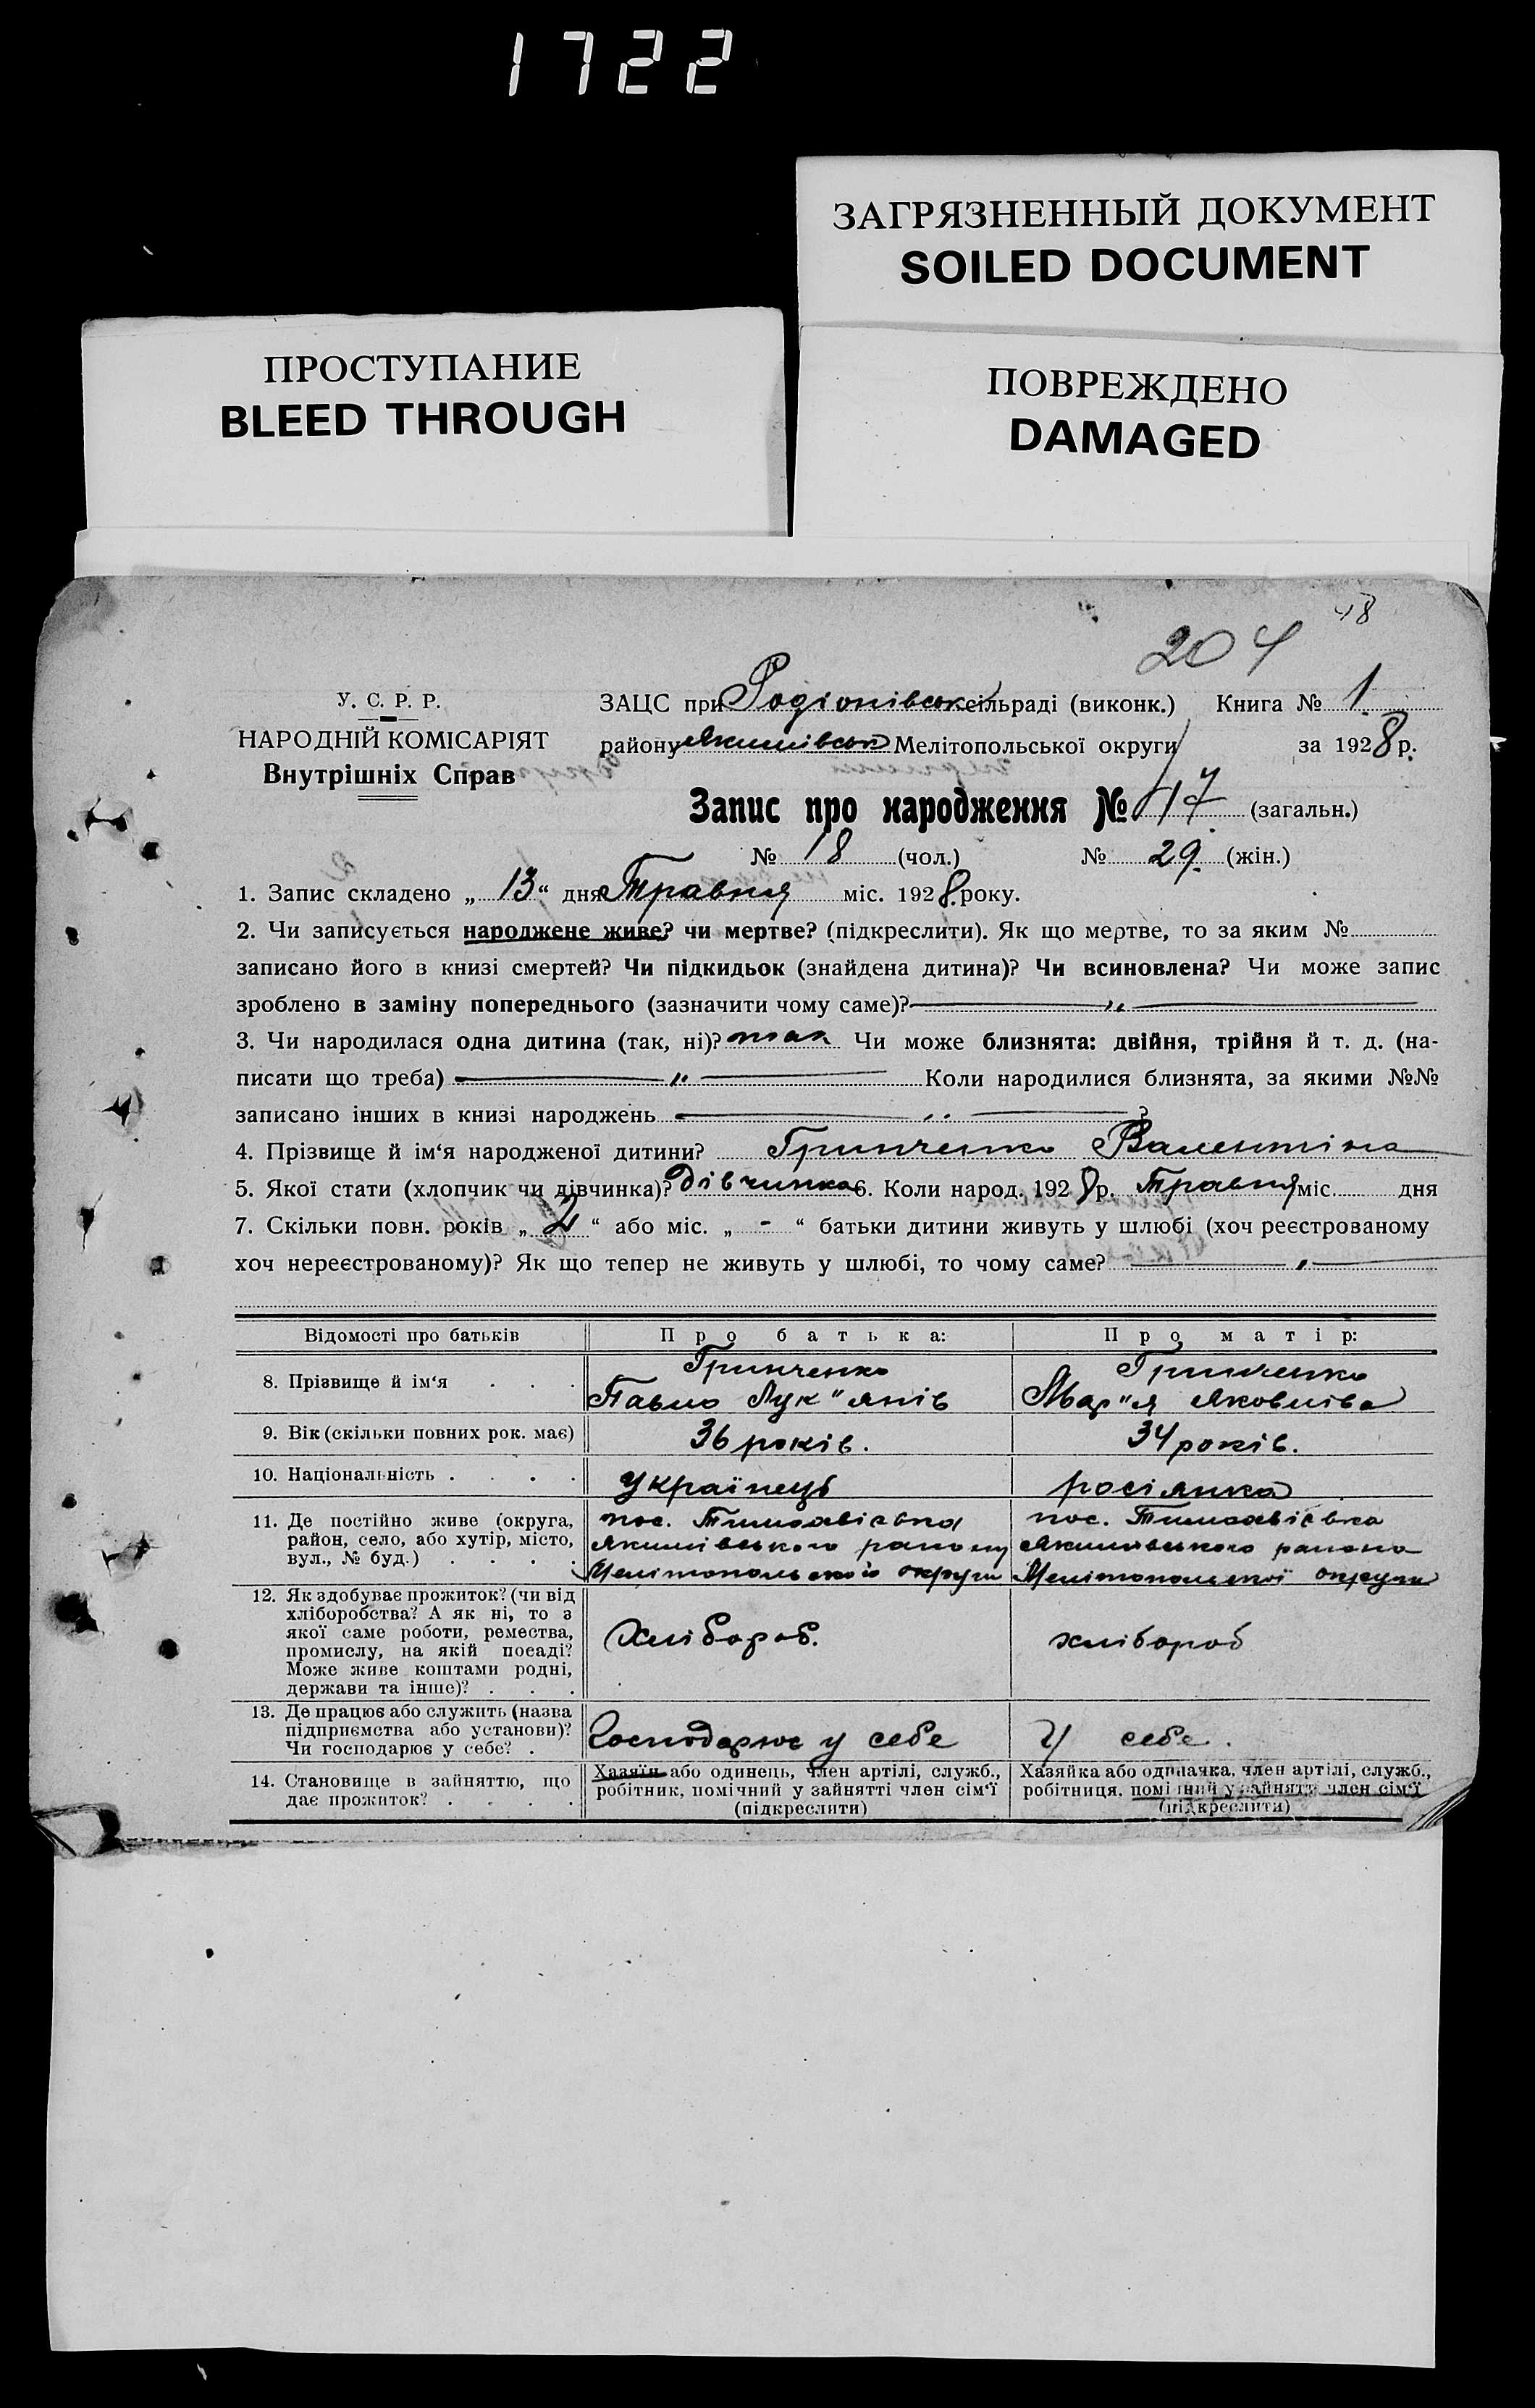 1722
ЗАГРЯЗНЕННЫЙ ДОКУМЕНТ
SOILED DOCUMENT
ПРОСТУПАНИЕ
BLEED THROUGH
ПОВРЕЖДЕНО
DAMAGED
48
204
У. С. Р. Р.
НАРОДНІЙ КОМІСАРІЯТ
Внутрішніх Справ
ЗАЦС при Родіонівськ сільраді (виконк.) Книга № 1
району Якимівськ Мелітопольської округи за 1928 р.
Запис про народження № 47 (загальн.)
№ 18 (чол.) № 29 (жін.)
1. Запис складено „ 13 “ дня Травня міс. 1928 року.
2. Чи записується народжене живе? чи мертве? (підкреслити). Як що мертве, то за яким №
записано його в книзі смертей? Чи підкидьок (знайдена дитина)? Чи всиновлена? Чи може запис
зроблено в заміну попереднього (зазначити чому саме)? — „ —
3. Чи народилася одна дитина (так, ні)? так Чи може близнята: двійня, трійня й т. д. (на-
писати що треба) — „ — Коли народилися близнята, за якими №№
записано інших в книзі народжень — „ — ?
4. Прізвище й ім‘я народженої дитини? Гринченко Валентіна
5. Якої стати (хлопчик чи дівчинка)? Дівчинка 6. Коли народ. 1928 р. Травня міс. дня
7. Скільки повн. років „ 2 “ або міс. „ - “ батьки дитини живуть у шлюбі (хоч реєстрованому
хоч нереєстрованому)? Як що тепер не живуть у шлюбі, то чому саме? — „ —
Відомості про батьків Про батька: Про матір:
8. Прізвище й ім‘я . . . Гринченко Павло Лук"янів Гринченко Мар"я Яковліва
9. Вік (скільки повних рок. має) 36 років. 34 років.
10. Національність . . . . українець росіянка
11. Де постійно живе (округа, пос. Тимоавієвка пос. Тимоавієвка
район, село, або хутір, місто, Якимівського району Якимівського района
вул., № буд.) . . . . Мелітопольської округи Мелітопольскої округи
12. Як здобуває прожиток? (чи від
хліборобства? А як ні, то з
якої саме роботи, ремества, Хлібороб. хлібороб
промислу, на якій посаді?
Може живе коштами родні,
держави та інше)? . . .
13. Де працює або служить (назва
підприємства або установи)? Господарює у себе У себе.
Чи господарює у себе? .
14. Становище в зайняттю, що Хазяїн або одинець, член артілі, служб., Хазяйка або одиначка, член артілі, служб.,
дає прожиток? . . . . робітник, помічний у зайнятті член сім‘ї робітниця, помічний у зайнятті член сім‘ї
(підкреслити) (підкреслити)